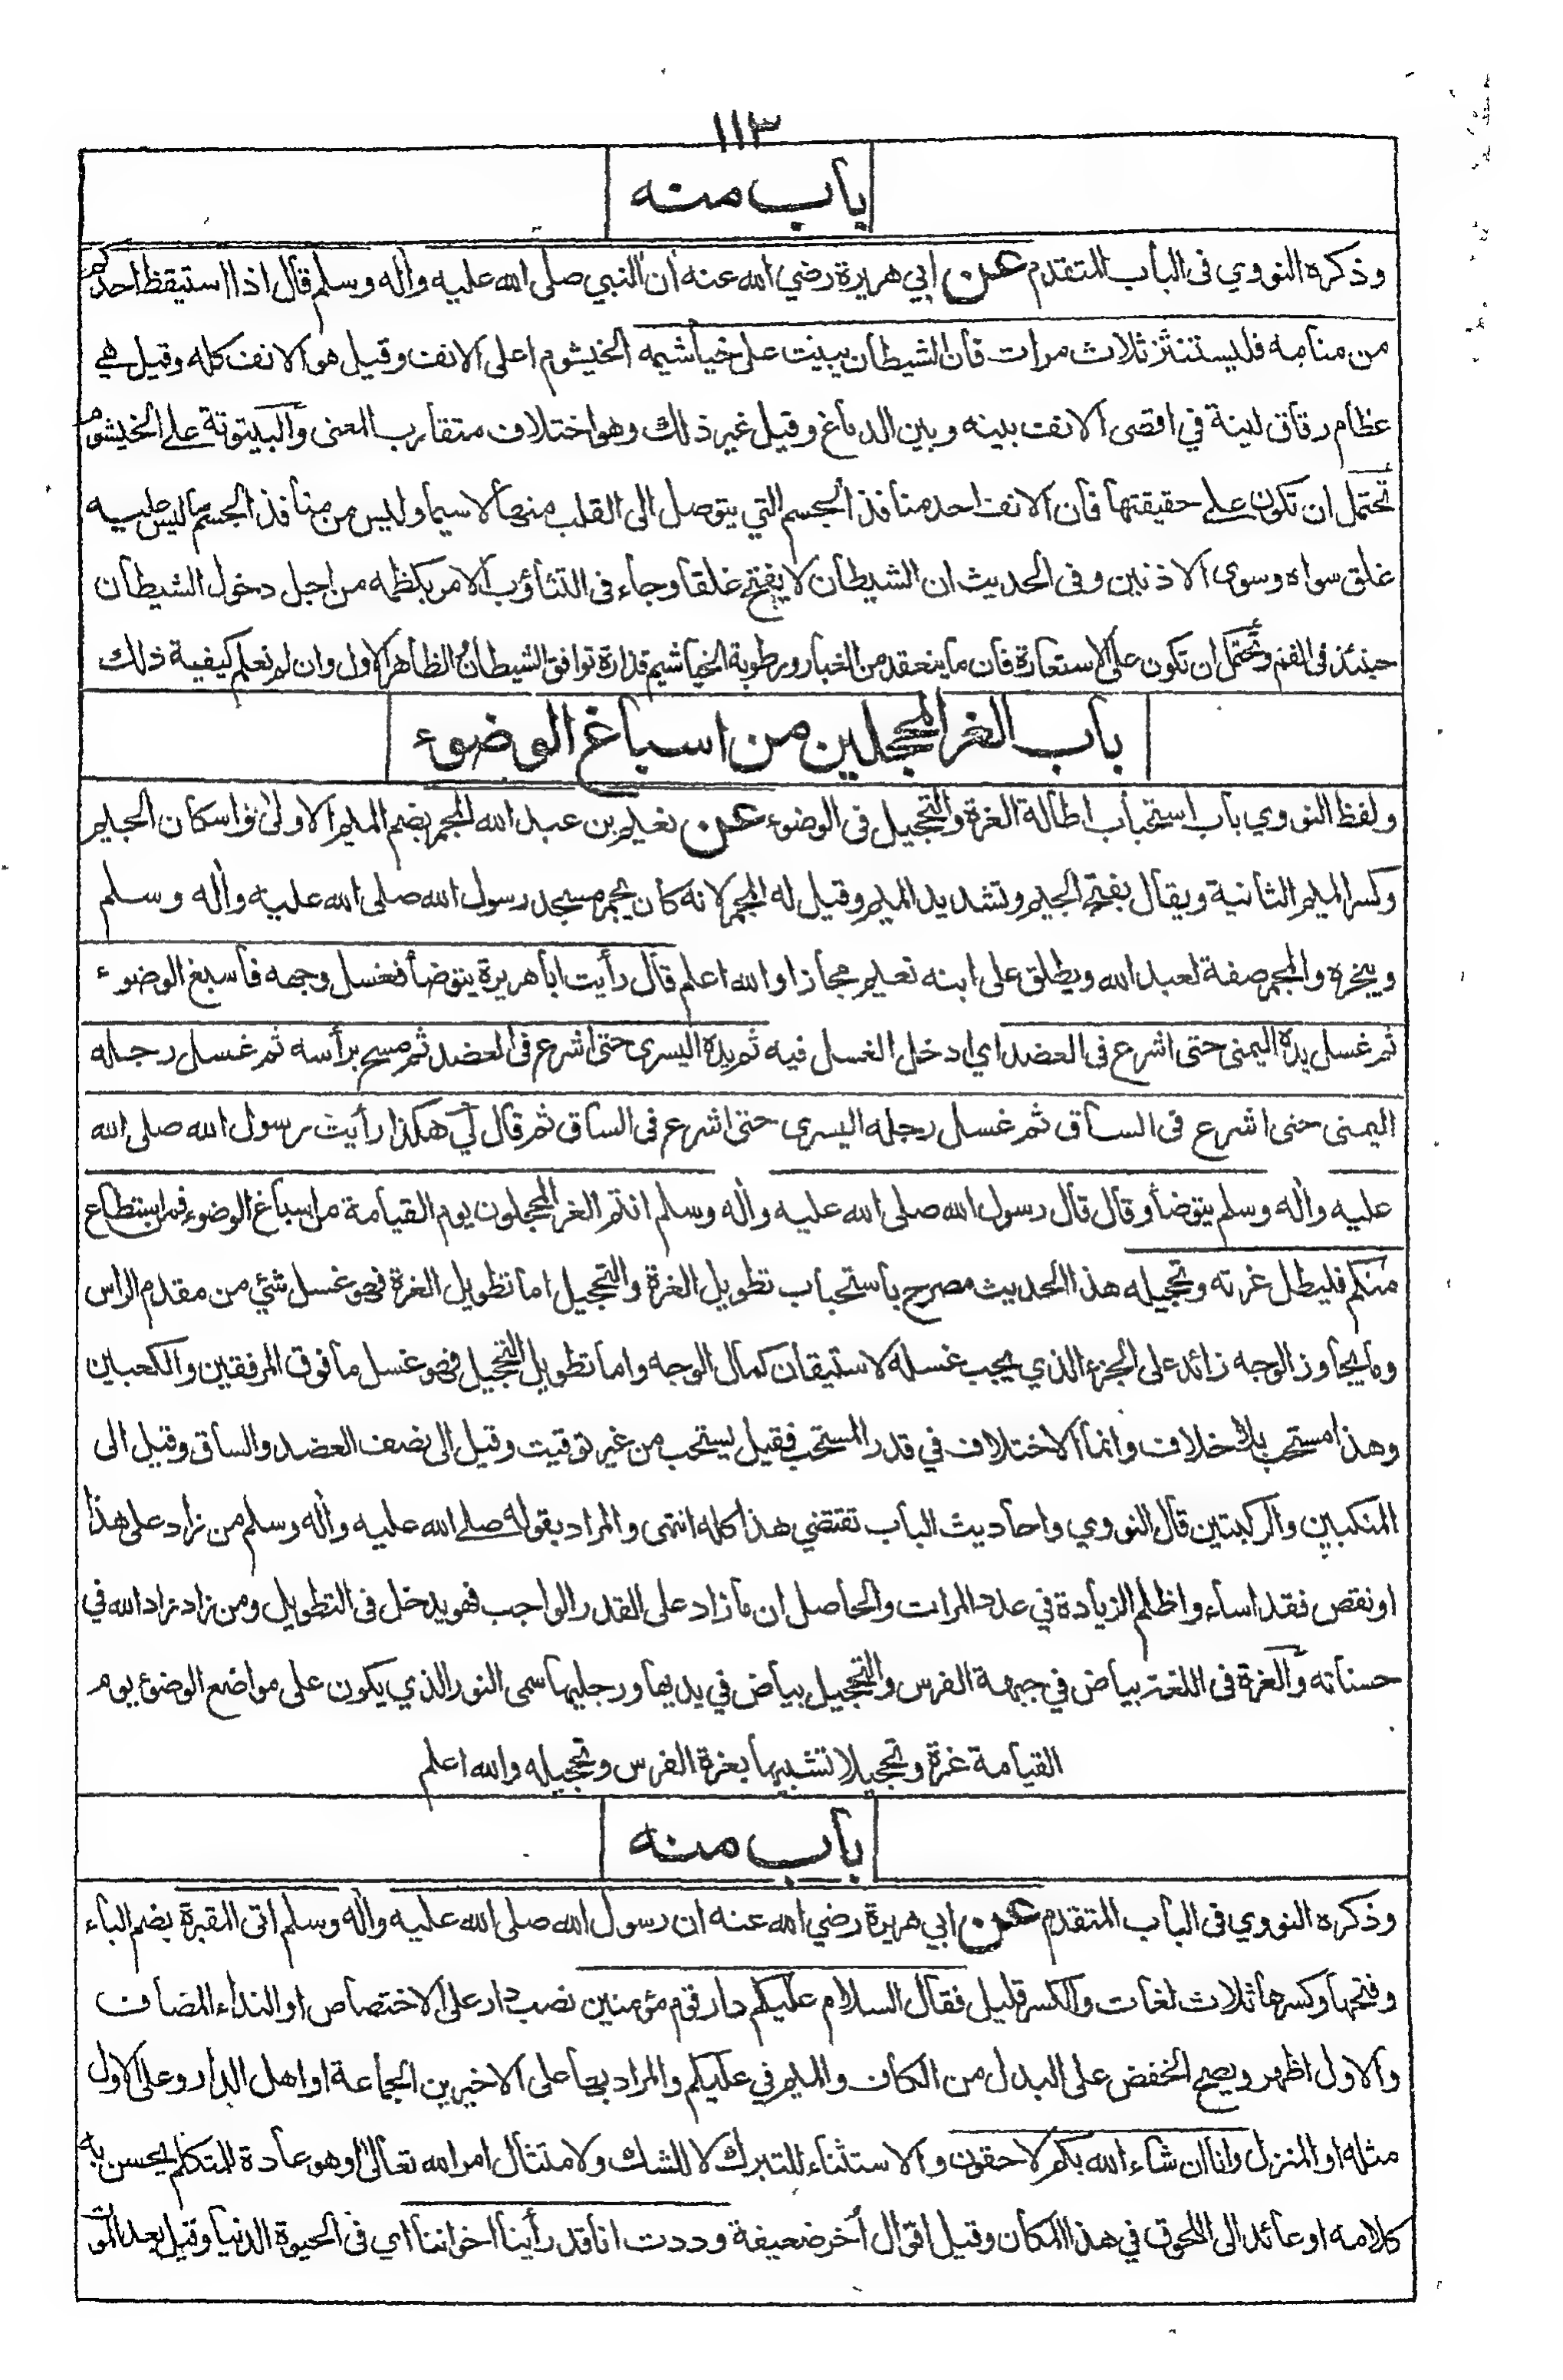 ١١٣
باب منه
وذكره النووي فى الباب المتقدم عن ابي هريرة رضي الله عنه ان النبي صلى الله عليه واٰله وسلم قال اذا استيقظ احدكم
من منامه فليستنثر ثلاث مرات فان الشيطان يبيت على خياشيمه الخيشوم اعلى الانف وقيل هو الانف كله وقيل هي
عظام رقاق لينة في اقصى الانف بينه وبين الدماغ وقيل غير ذلك وهو اختلاف متقارب المعنى والبيتوتة على الخيشوم
تحتمل ان تكون على حقيقتها فان الانف احد منافذ الجسم التي يتوصل الى القلب منها لاسيما وليس من منافذ الجسم ما ليس عليه
غلق سواه وسوى الاذنين وفى الحديث ان الشيطان لا يفتح غلقا وجاء فى التثاؤب الامر بكظمه من اجل دخول الشيطان
حينئذ فى الفم وتحتمل ان تكون على الاستعارة فان ما ينعقد من الغبار ورطوبة الخياشيم قذارة توافق الشيطان والظاهر الاول وان لم نعلم كيفية ذلك
باب الغر المحجلين من اسباغ الوضوء
ولفظ النووي باب استحباب اطالة الغرة والتحجيل فى الوضوء عن نعيم بن عبد الله المجمر بضم الميم الاولى واسكان الجيم
وكسر الميم الثانية ويقال بفتح الجيم وتشديد الميم وقيل له المجمر لانه كان يجمر مسجد رسول الله صلى الله عليه واٰله وسلم
ويبخره والمجمر صفة لعبد الله ويطلق على ابنه نعيم مجازا والله اعلم قال رأيت ابا هريرة يتوضأ فغسل وجهه فاسبغ الوضوء
ثم غسل يده اليمنى حتى اشرع فى العضد اي ادخل الغسل فيه ثم يده اليسرى حتى اشرع فى العضد ثم مسح برأسه ثم غسل رجله
اليمنى حتى اشرع فى الساق ثم غسل رجله اليسرى حتى اشرع فى الساق ثم قال لي هكذا رأيت رسول الله صلى الله
عليه واٰله وسلم يتوضأ وقال قال رسول الله صلى الله عليه واٰله وسلم انتم الغر المحجلون يوم القيامة من اسباغ الوضوء فمن استطاع
منكم فليطل غرته وتحجيله هذا الحديث مصرح باستحباب تطويل الغرة والتحجيل اما تطويل الغرة فهو غسل شئ من مقدم الراس
وما يجاوز الوجه زائد على الجزء الذي يجب غسله لاستيقان كمال الوجه واما تطويل التحجيل فهو غسل ما فوق المرفقين والكعبين
وهذا مستحب بلا خلاف وانما الاختلاف في قدر المستحب فقيل يستحب من غير توقيت وقيل الى نصف العضد والساق وقيل الى
المنكبين والركبتين قال النووي واحاديث الباب تقتضي هذا كله انتهى والمراد بقوله صلى الله عليه واٰله وسلم من زاد على هذا
او نقص فقد اساء واظلم الزيادة في عدد المرات والحاصل ان ما زاد على القدر الواجب فهو يدخل فى التطويل ومن زاد زاد الله في
حسناته والغرة فى اللغة بياض في جبهة الفرس والتحجيل بياض في يديها ورجليها سمى النور الذي يكون على مواضع الوضوء يوم
القيامة غرة وتحجيلا تشبيها بغرة الفرس وتحجيله والله اعلم
باب منه
وذكره النووي فى الباب المتقدم عن ابي هريرة رضي الله عنه ان رسول الله صلى الله عليه واٰله وسلم اتى المقبرة بضم الباء
وفتحها وكسرها ثلاث لغات والكسر قليل فقال السلام عليكم دار قوم مؤمنين نصب دار على الاختصاص او النداء المضاف
والاول اظهر ويصح الخفض على البدل من الكاف والميم في عليكم والمراد بها على الاخيرين الجماعة او اهل الدار وعلى الاول
مثله او المنزل وانا ان شاء الله بكم لاحقون والاستثناء للتبرك لا للشك ولامتثال امر الله تعالى او هو عادة للمتكلم يحسن به
كلامه او عائد الى اللحوق في هذا المكان وقيل اقوال أخر ضعيفة وددت انا قد رأينا اخواننا اي فى الحيوة الدنيا وقيل بعد الموت